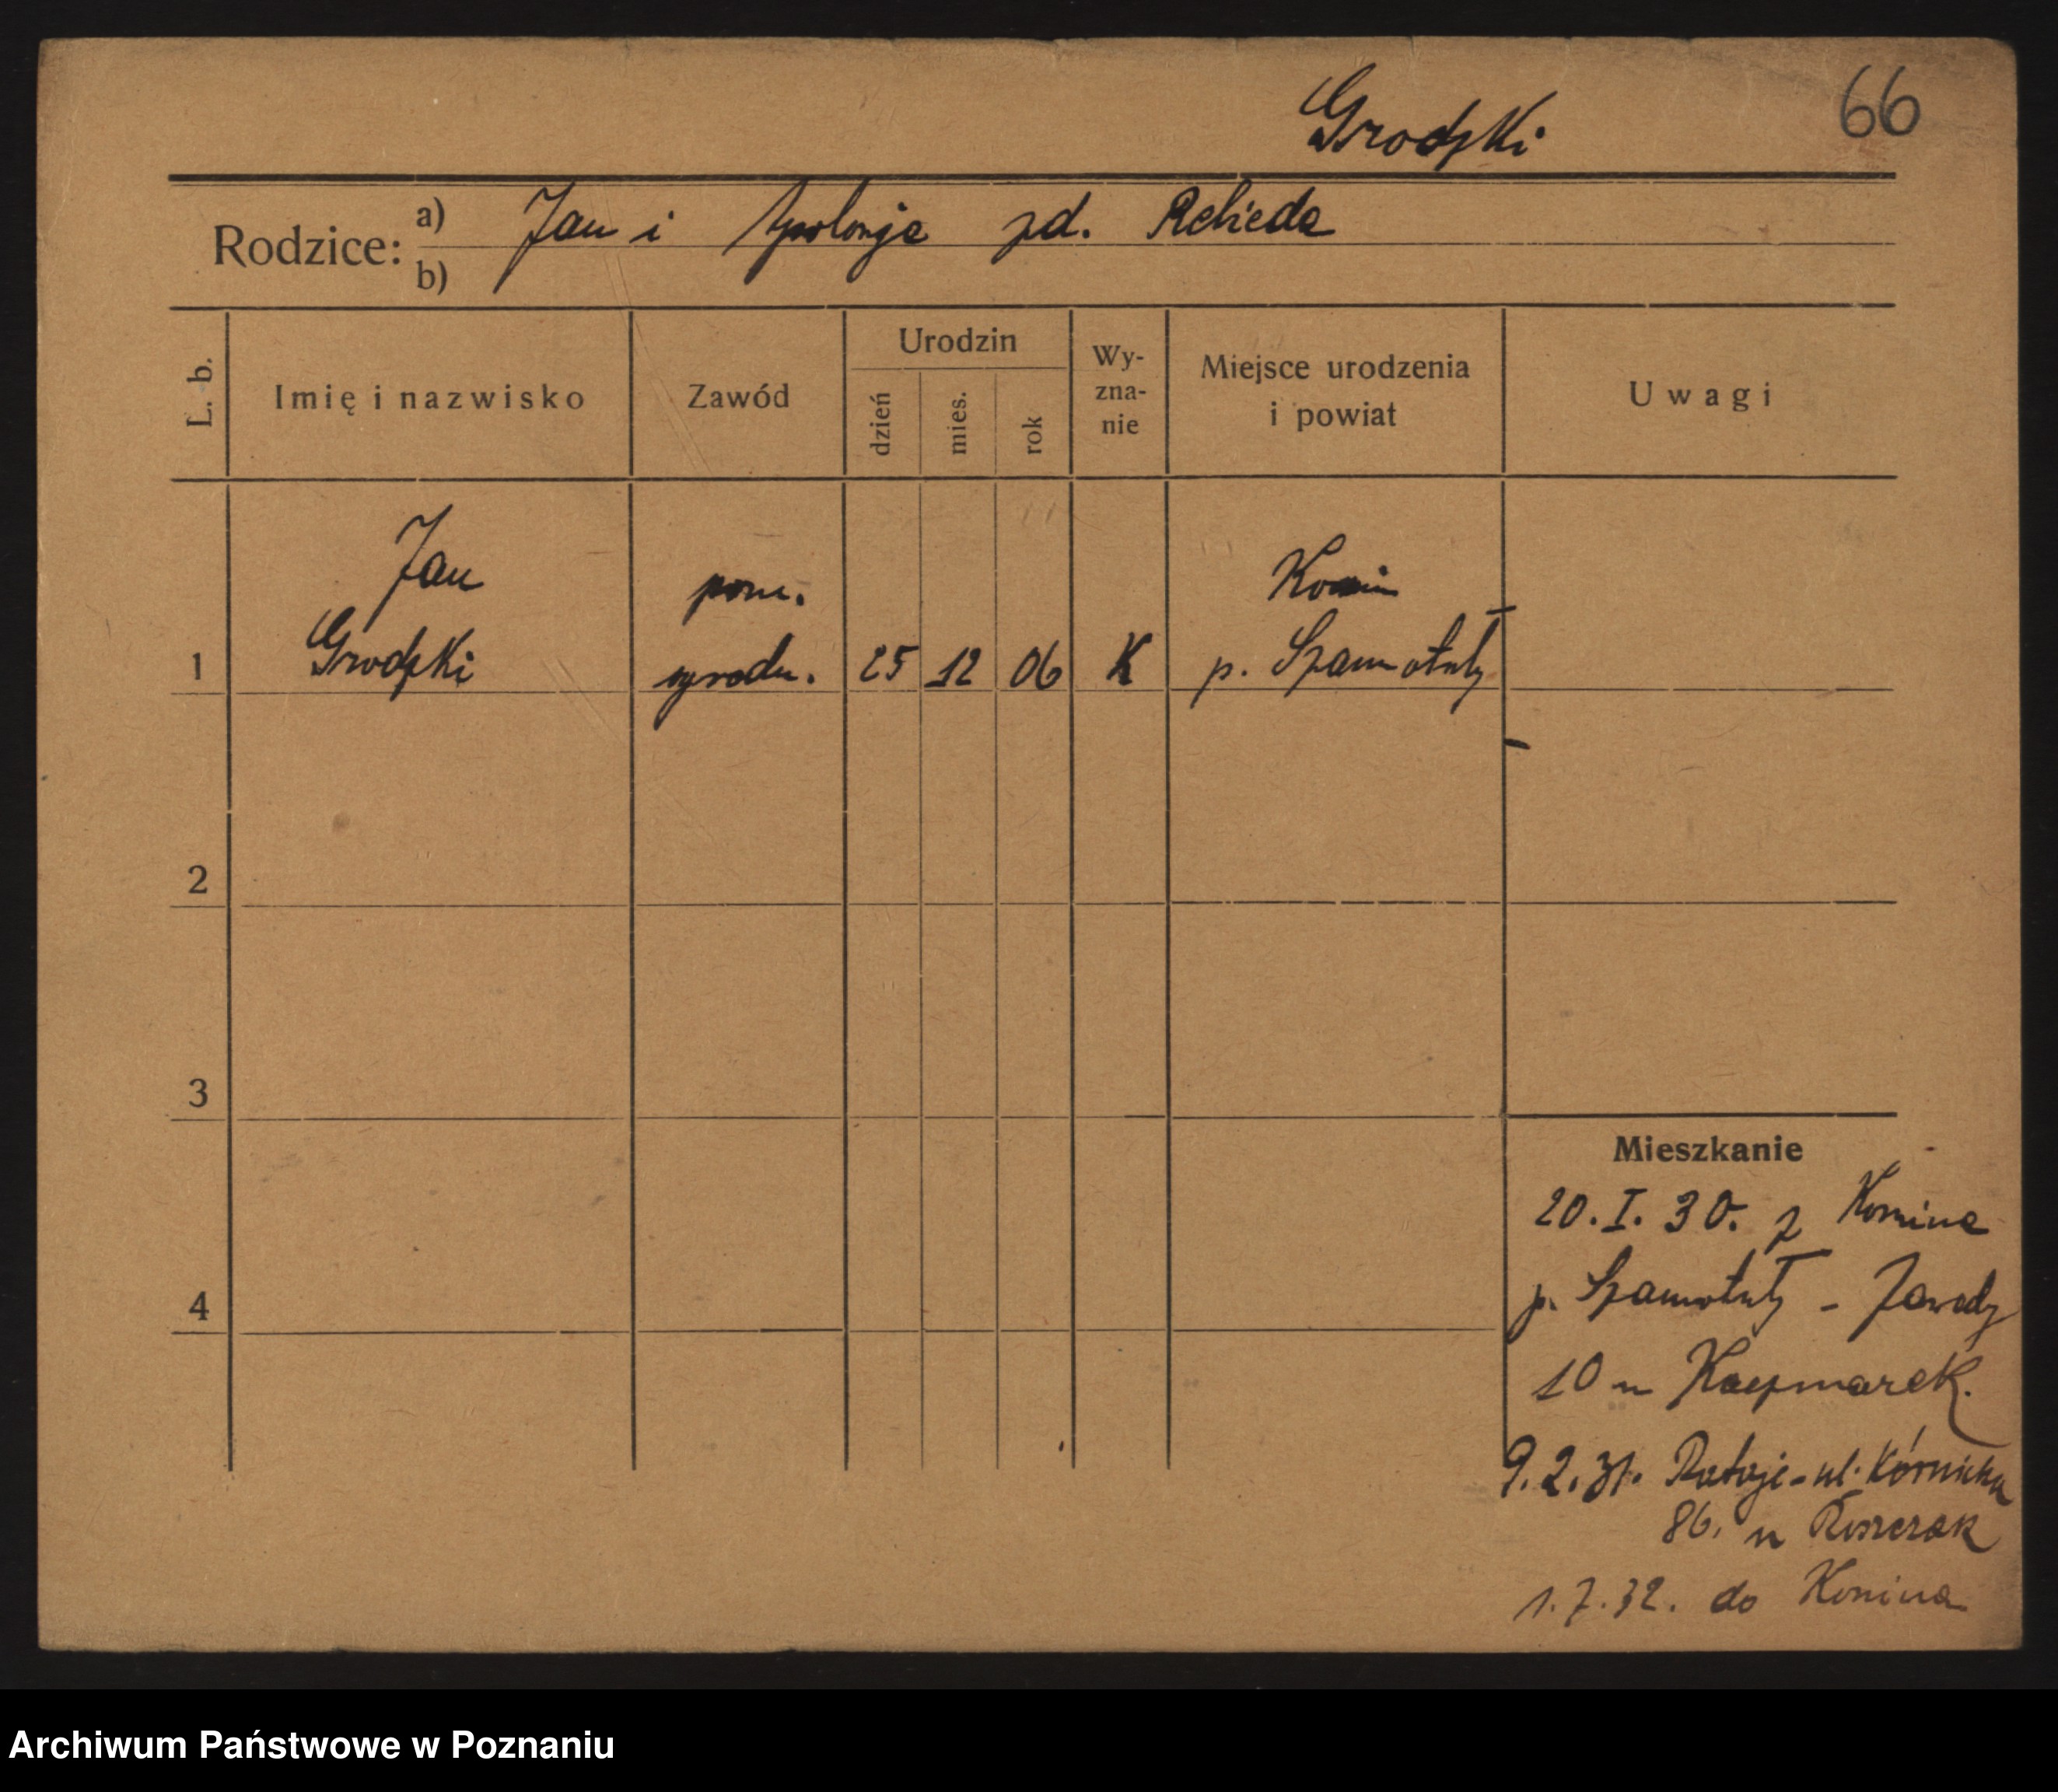 Grodzki
66
Rodzice: a) Jan i Apolonja zd. Rebieda
b)
L. b.
Imię i nazwisko
Zawód
Urodzin
dzień
mies.
rok
Wy-
zna-
nie
Miejsce urodzenia
i powiat
Uwagi
Jan
pom.
Konin
1 Grodzki ogrodn. 25 12 06 K p. Szamotuły
2
3
4
Mieszkanie
20. I. 30. z Konina
p. Szamotuły - Zawady
10 u Kaczmarek.
9.2.31. Rataje - ul. Kórnicka
86. u
1.7.32. do Konina
Archiwum Państwowe w Poznaniu